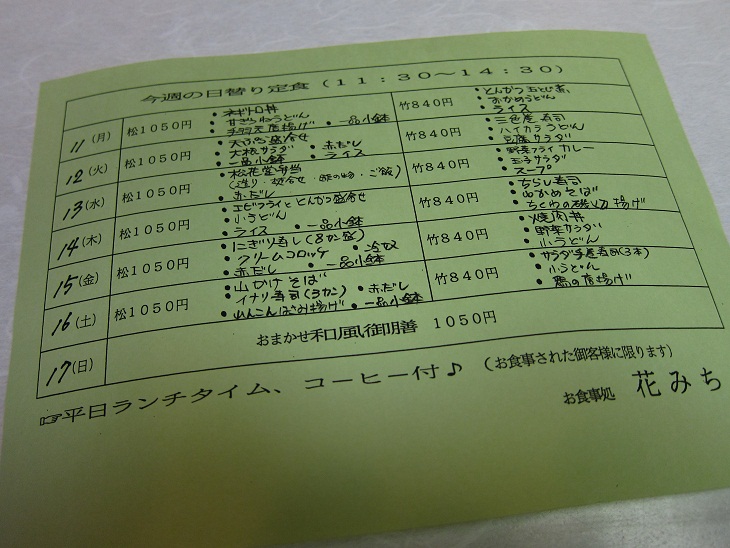 今週の日替り定食(11:30～14:30)
11(月) 松1050円 • ネギトロ丼 • 一品小鉢 竹840円 • とんかつ玉とじ煮 • おかめうどん • ライス
12(火) 松1050円 • 天ぷら盛合せ • 大根サラダ • 赤だし • 一品小鉢 • ライス 竹840円 • 三色座寿司 • ハイカラうどん • 豆腐サラダ
13(水) 松1050円 • 松花堂弁当 (造り・焚合せ・酢の物・ご飯) • 赤だし 竹840円 • 野菜フライカレー • 玉子サラダ • スープ
14(木) 松1050円 • エビフライととんかつ盛合せ • 小うどん • ライス • 一品小鉢 竹840円 • ちらし寿司 • わかめそば • ちくわの磯辺揚げ
15(金) 松1050円 • にぎり寿し(8カン盛) • クリームコロッケ • 冷奴 • 赤だし • 一品小鉢 竹840円 • 焼肉丼 • 野菜サラダ • 小うどん
16(土) 松1050円 • 山かけそば • イナリ寿司(3カン) • 赤だし • 一品小鉢 竹840円 • サラダ手巻寿司(3本) • 小うどん • 鶏の唐揚げ
17(日) おまかせ和風御膳 1050円
☞平日ランチタイム、コーヒー付♪ (お食事された御客様に限ります)
お食事処 花みち